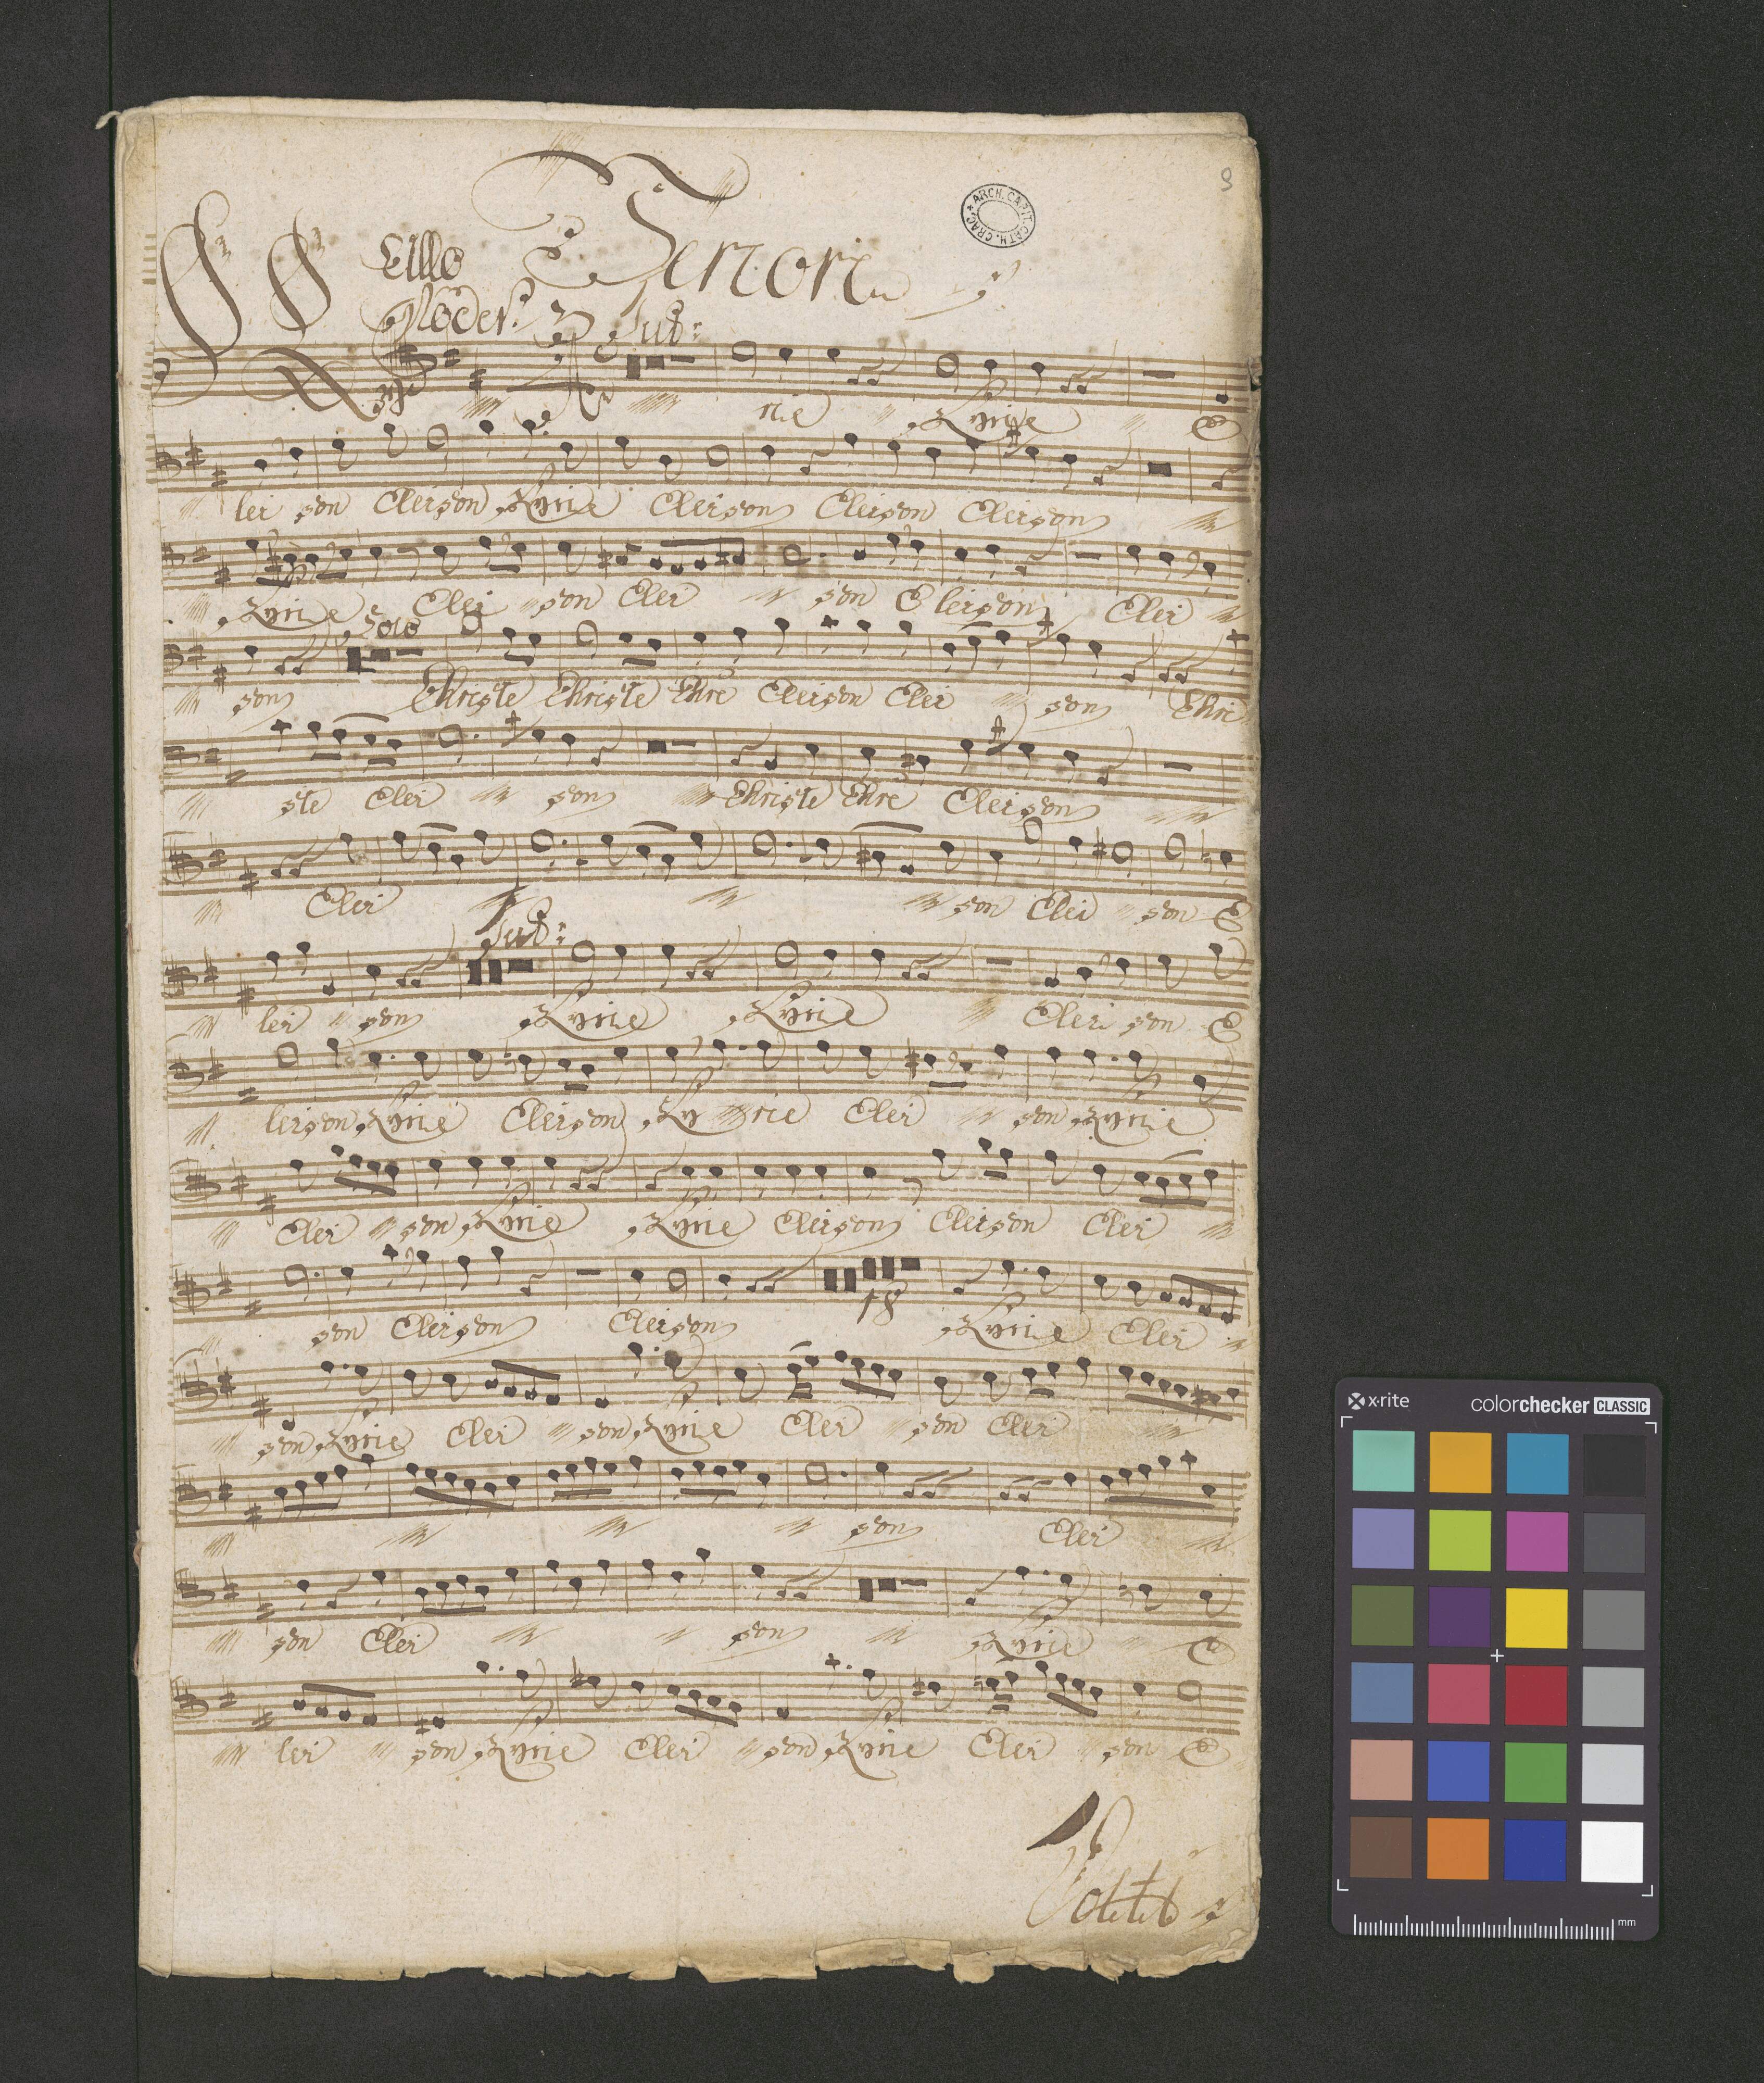 9
ARCH. CAPIT. CATH. CRAC.
Tenore
Allo
Moder.
Tut:
Ky rie Kyrie E
lei son Eleison Kyrie Eleison Eleison Eleison
Kyrie Elei son Elei son Eleison Elei
Solo
son Christe Christe Chre Eleison Elei son Chri
ste Elei son Christe Chre Eleison
Elei son Elei son E
Tut:
lei son Kyrie Kyrie Elei son E
leison Kyrie Eleison Ky rie Elei son Kyrie
Elei son Kyrie Kyrie Eleison Eleison Elei
18
son Eleison Eleison Kyrie Elei
son Kyrie Elei son Kyrie Elei son Elei
son Elei
son Elei son Kyrie E
lei son Kyrie Elei son Kyrie Elei son E
x-rite
colorchecker CLASSIC
mm